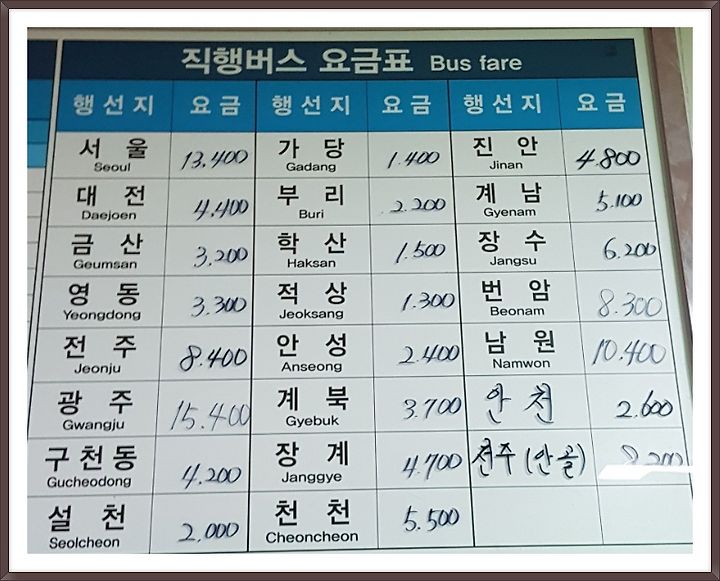 직행버스 요금표 Bus fare
행선지 요금 행선지 요금 행선지 요금
서울 13,400 가당 1.400 진안 4.800
Seoul Gadang Jinan
대전 4,400 부리 2.200 계남 5.100
Daejoen Buri Gyenam
금산 3,200 학산 1.500 장수 6.200
Geumsan Haksan Jangsu
영동 3.300 적상 1.300 번암 8.300
Yeongdong Jeoksang Beonam
전주 8.400 안성 2.400 남원 10.400
Jeonju Anseong Namwon
광주 15.400 계북 3.700 안천 2.600
Gwangju Gyebuk
구천동 4.200 장계 4.700 전주(안골) 8.200
Gucheodong Janggye
설천 2.000 천천 5.500
Seolcheon Cheoncheon